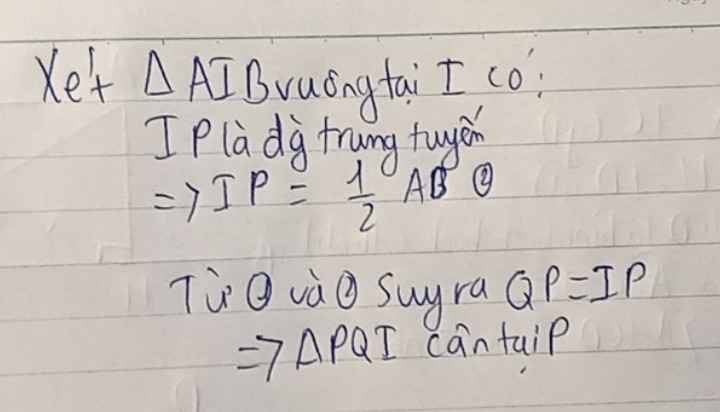 Xét Δ AIB vuông tại I có:
IP là đg̀ trung tuyến
=> IP = 1/2 AB ②
Từ ① và ② suy ra QP = IP
=> ΔPQI cân tại P